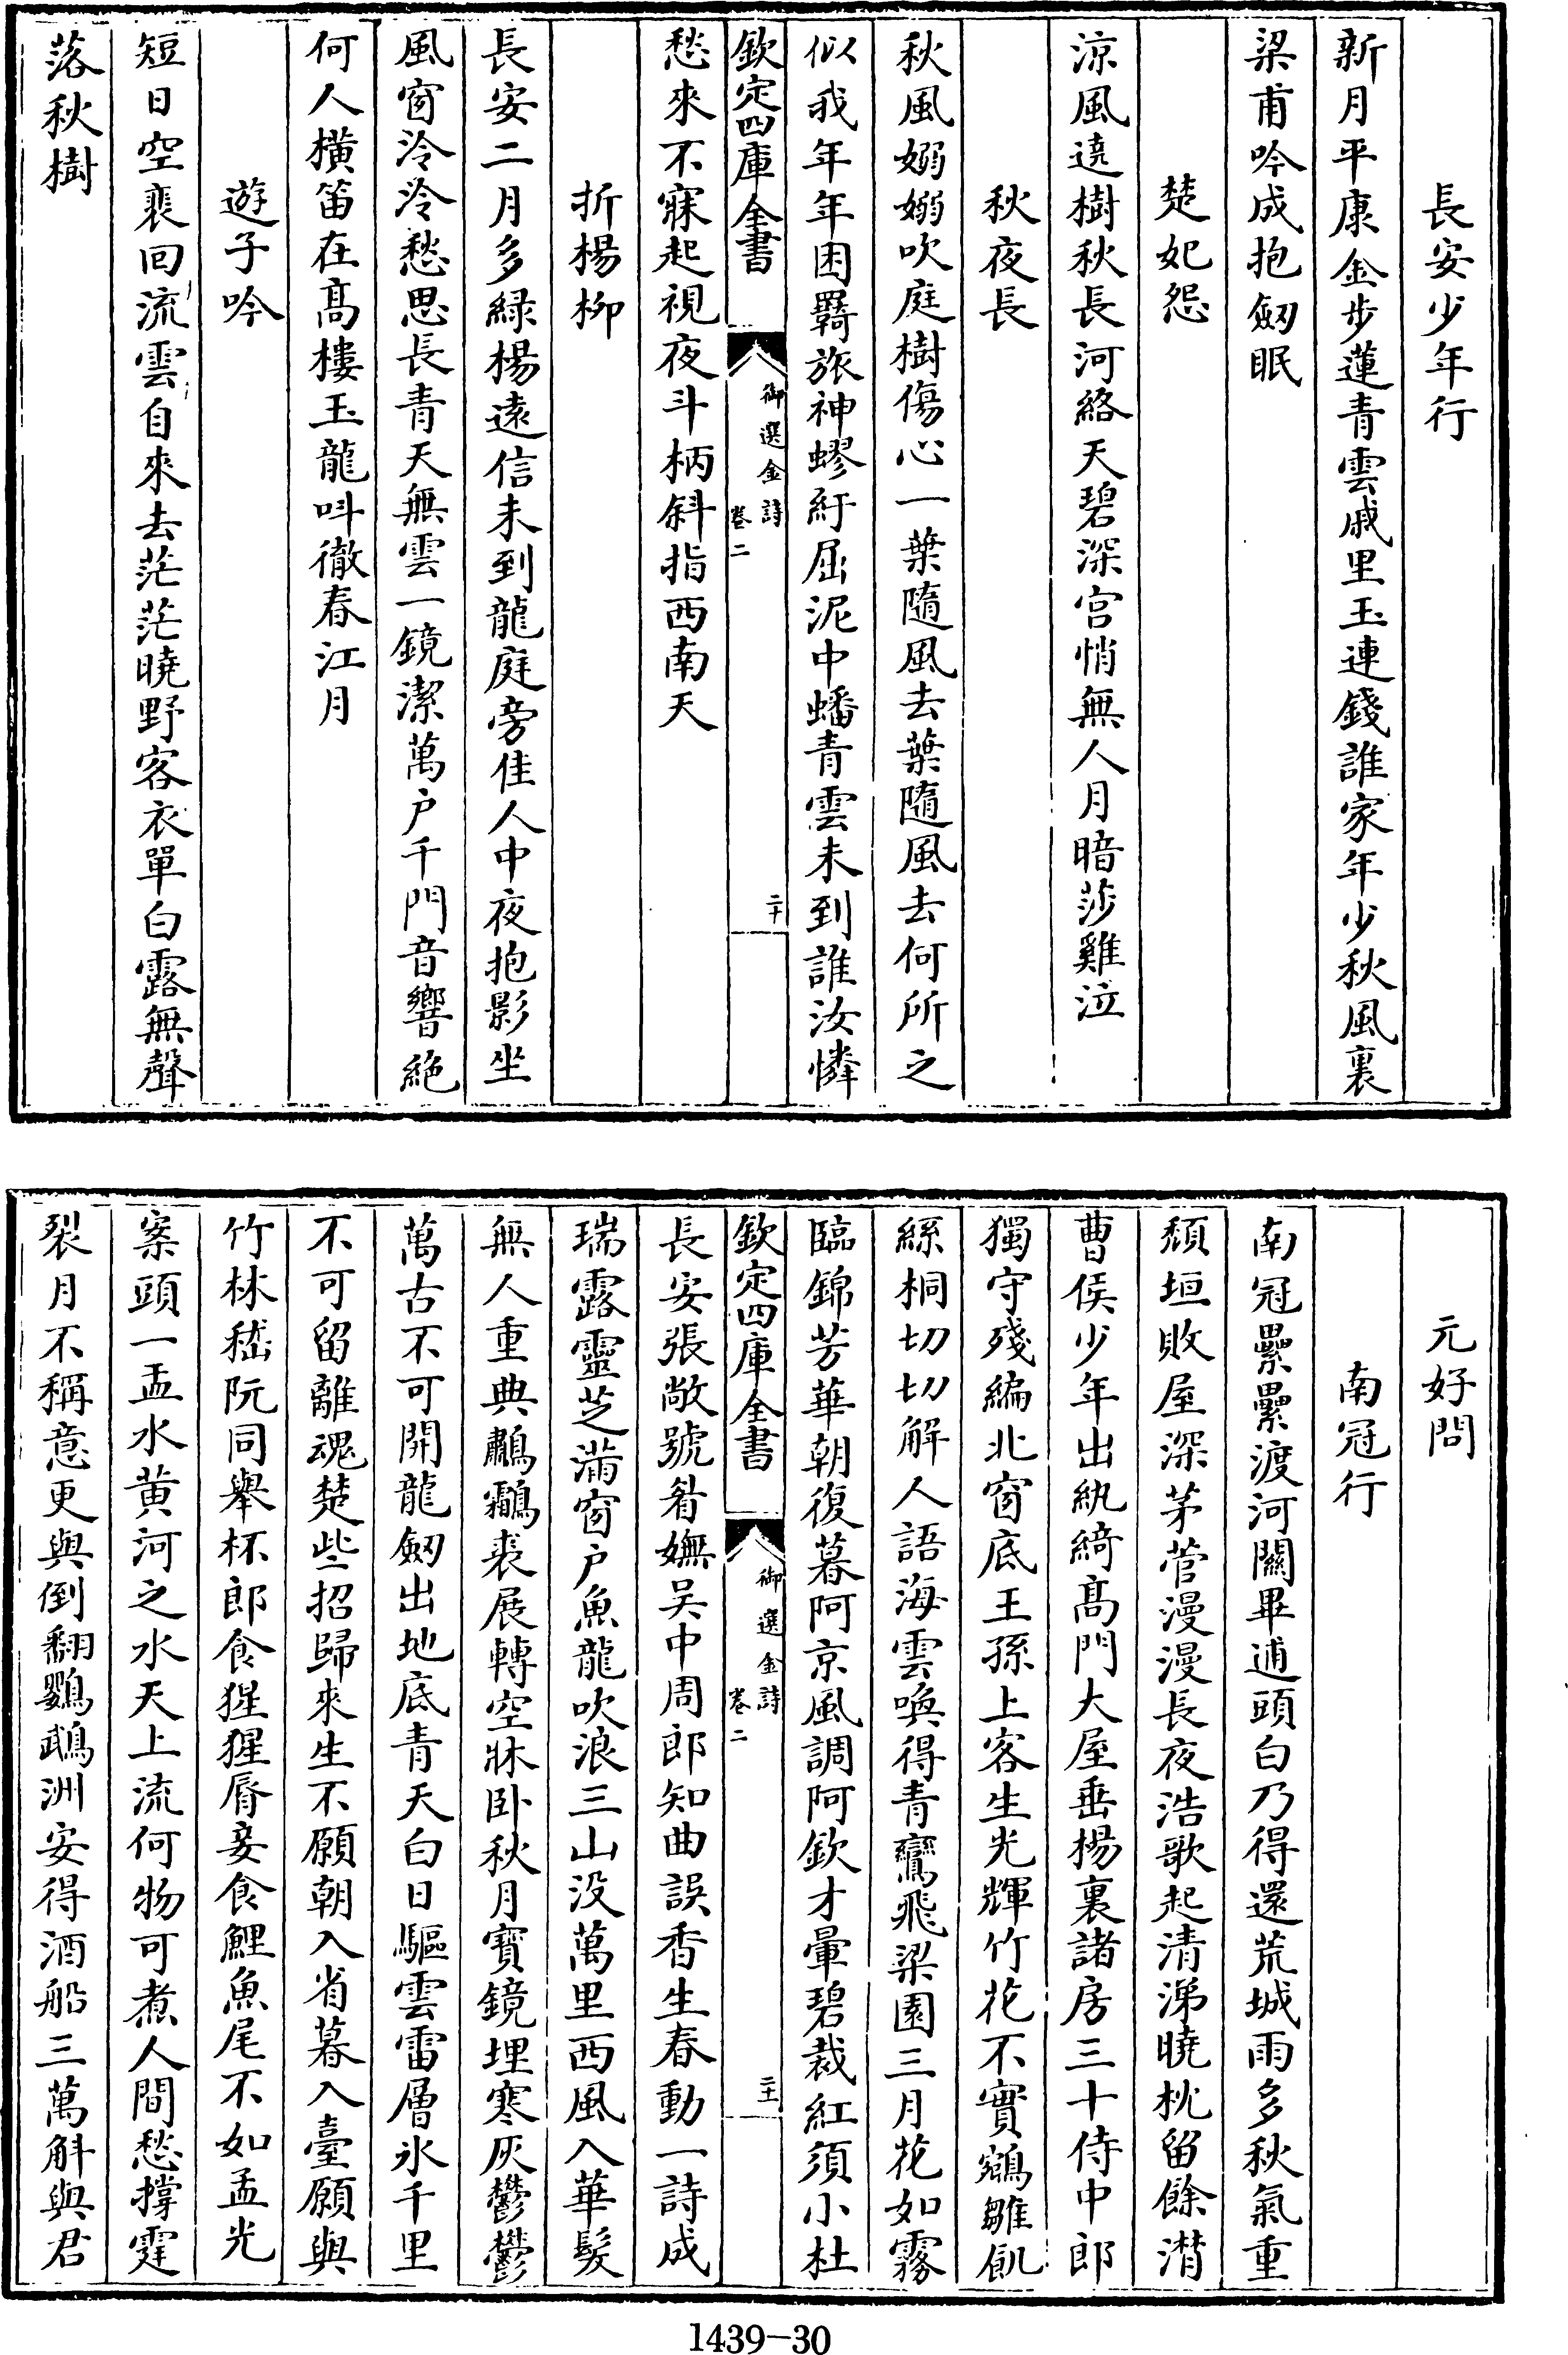 長安少年行
新月平康金步蓮青雲戚里玉連錢誰家年少秋風裏
梁甫吟成抱劒眠
楚妃怨
涼風遶樹秋長河絡天碧深宫悄無人月暗莎雞泣
秋夜長
秋風嫋嫋吹庭樹傷心一葉隨風去葉隨風去何所之
似我年年困羇旅神蟉紆屈泥中蟠青雲未到誰汝憐
欽定四庫全書
御選金詩
卷二
二十
愁來不寐起視夜斗柄斜指西南天
折楊柳
長安二月多緑楊遠信未到龍庭旁佳人中夜抱影坐
風窗泠泠愁思長青天無雲一鏡潔萬户千門音響絶
何人橫笛在髙樓玉龍呌徹春江月
遊子吟
短日空裵回流雲自來去茫茫曉野客衣單白露無聲
落秋樹
元好問
南冠行
南冠纍纍渡河關畢逋頭白乃得還荒城雨多秋氣重
頽垣敗屋深茅菅漫漫長夜浩歌起清涕曉枕留餘潸
曹侯少年出紈綺髙門大屋垂楊裏諸房三十侍中郎
獨守殘編北窗底王孫上客生光輝竹花不實鵷雛飢
絲桐切切解人語海雲喚得青鸞飛梁園三月花如霧
臨錦芳華朝復暮阿京風調阿欽才暈碧裁紅須小杜
欽定四庫全書
御選金詩
卷二
二十一
長安張敞號眉嫵吴中周郎知曲誤香生春動一詩成
瑞露靈芝滿窗户魚龍吹浪三山没萬里西風入華髮
無人重典鷫鸘裘展轉空牀卧秋月寳鏡埋寒灰鬱鬱
萬古不可開龍劒出地底青天白日驅雲雷層氷千里
不可留離魂楚些招歸來生不願朝入省暮入臺願與
竹林嵇阮同舉杯郎食猩猩脣妾食鯉魚尾不如孟光
案頭一盂水黄河之水天上流何物可煮人間愁撐霆
裂月不稱意更與倒翻鸚鵡洲安得酒船三萬斛與君
1439—30